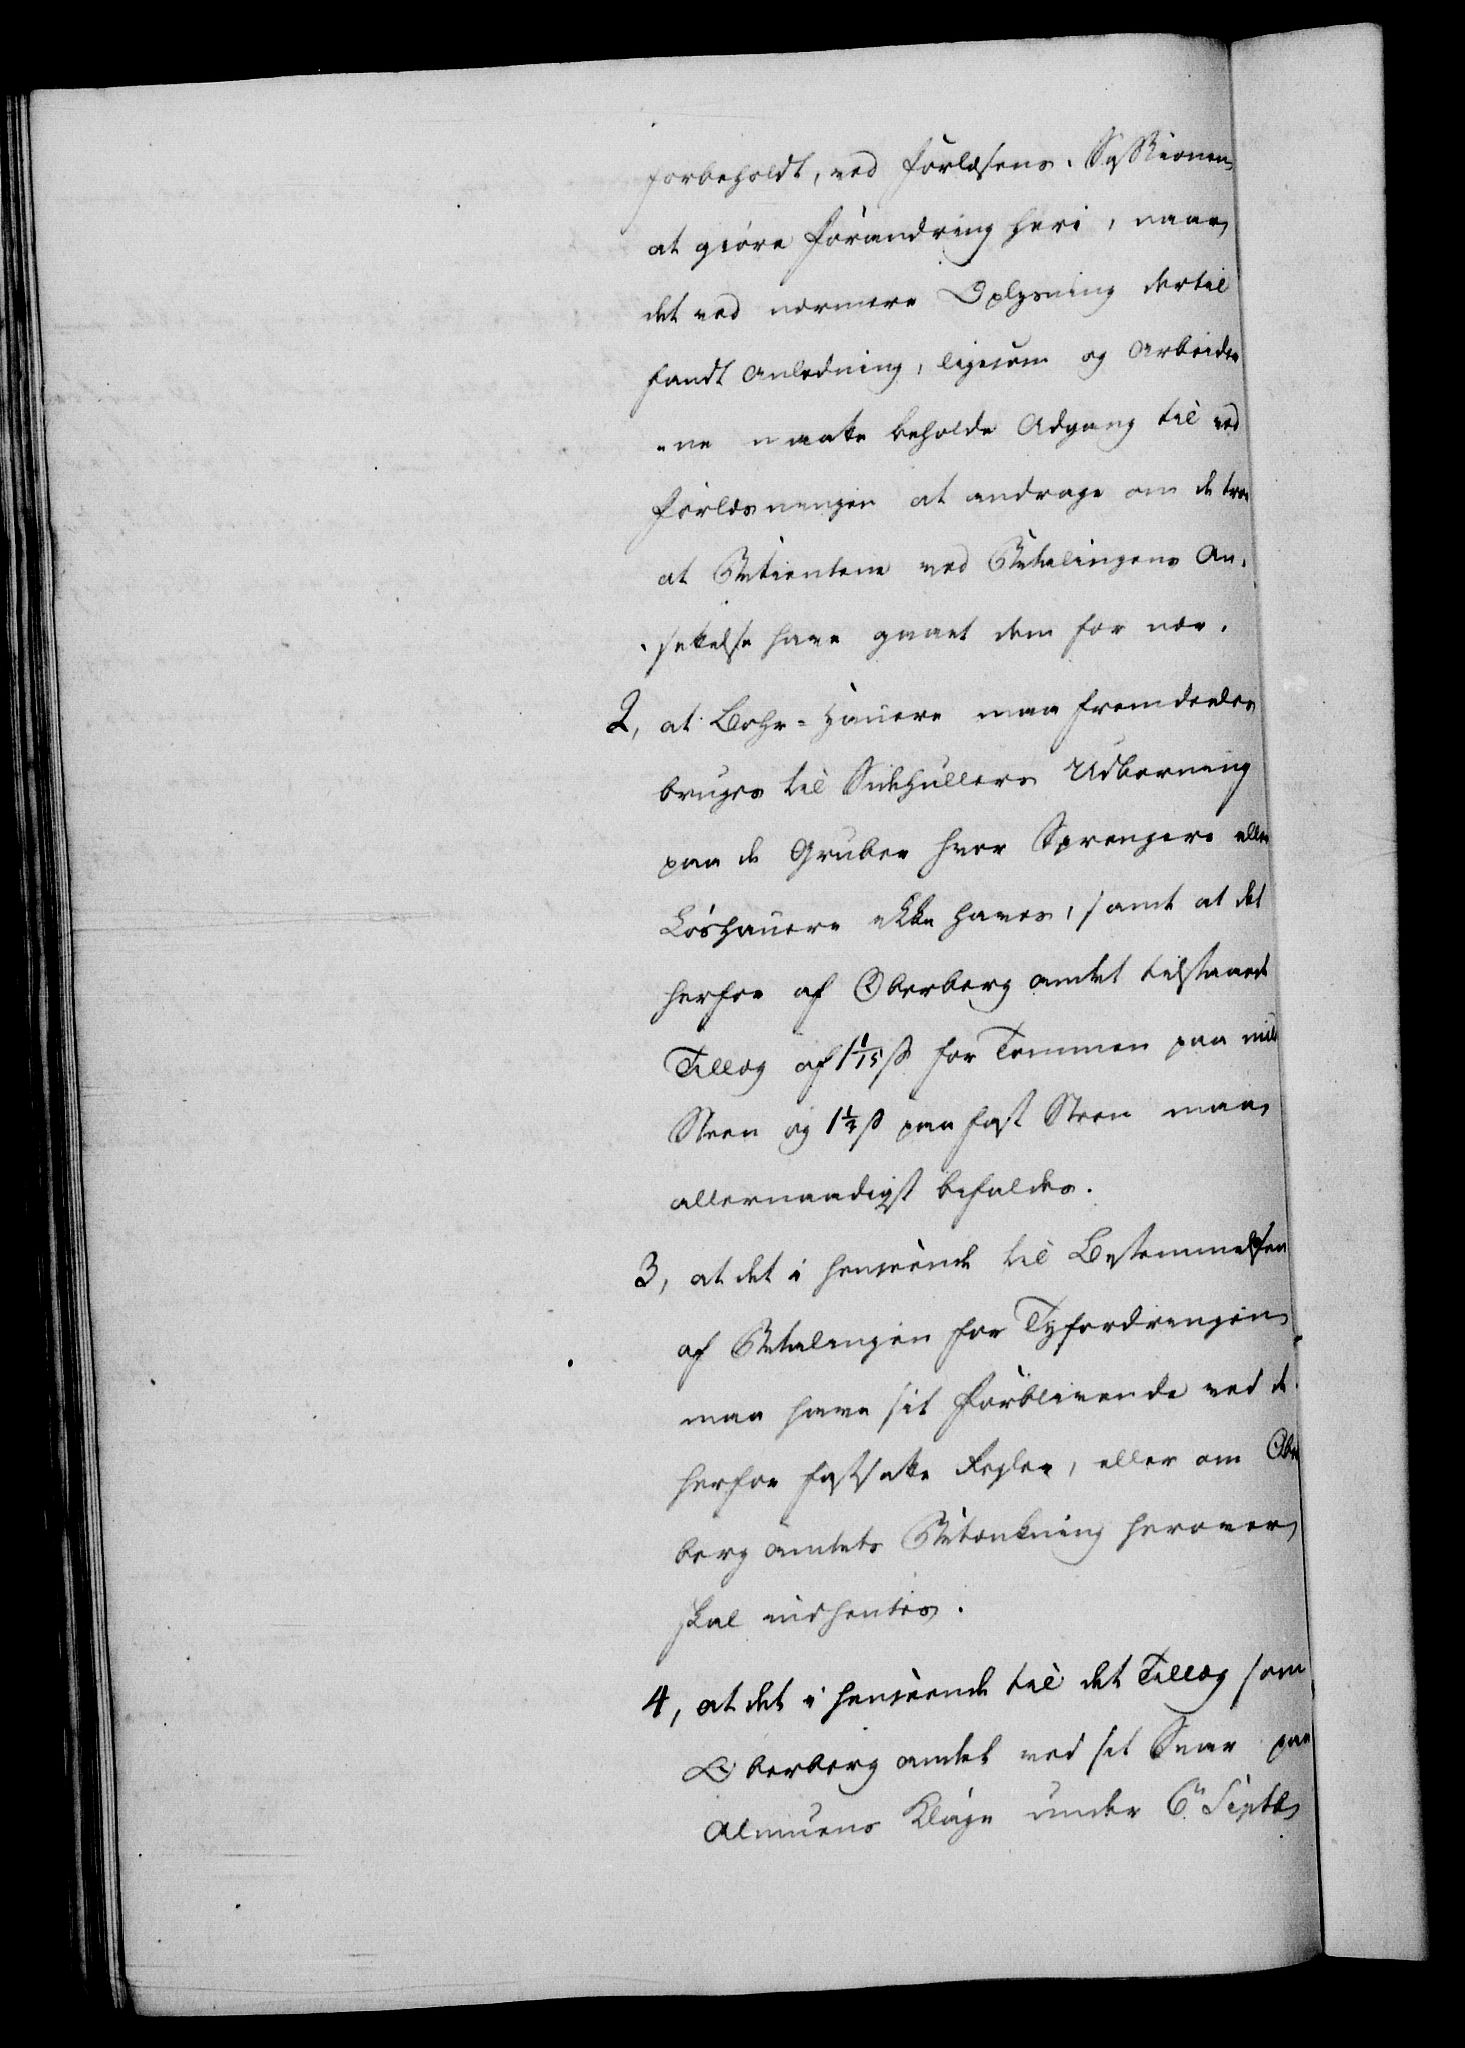 forbeholdt, ved Forløsens-Sessionen
at giøre Forandring heri, naar
det ved nærmere Oplysning dertil
fandt Anledning, ligesom og Arbeider
-ne maatte beholde Adgang til ved
Forløsningen at andrage om de troe
at Betienterne ved Betalingens An-
-sættelse have gaaet dem for nær.
2, at Bohr-Hauere maa fremdeeles
bruges til Sidehullers Udboring
paa de Gruber hvor Sprengere eller
Løshauere ikke haves, samt at det
herfor af Oberberg amtet tilstaaede
Tillæg af 1 1/15 ß for Tommen paa mild
Steen og 1 1/2 ß paa fast Steen maa
allernaadigst befales.
3, at det i henseende til Bestemmelsen
af Betalingen for Tyfordringen
maa have sit Forblivende ved de
herfor fastsatte Regler, eller om Ober
berg amtets Betænkning herover
skal indhentes.
4, at det i henseende til det Tillæg som
Oberberg amtet ved sit Svar paa
Almuens Klage under 6te Septbr